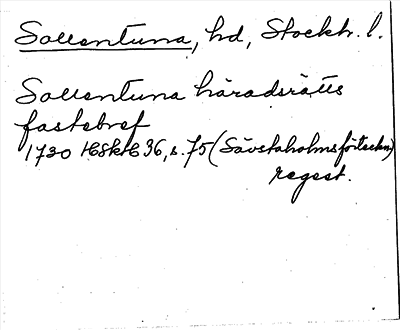 Sollentuna, hd, Stockh. l.
Sollentuna häradsrätts
fastebref
1730 HSkH 36, s. 75 (Sävstaholmsförteckn.)
regest.